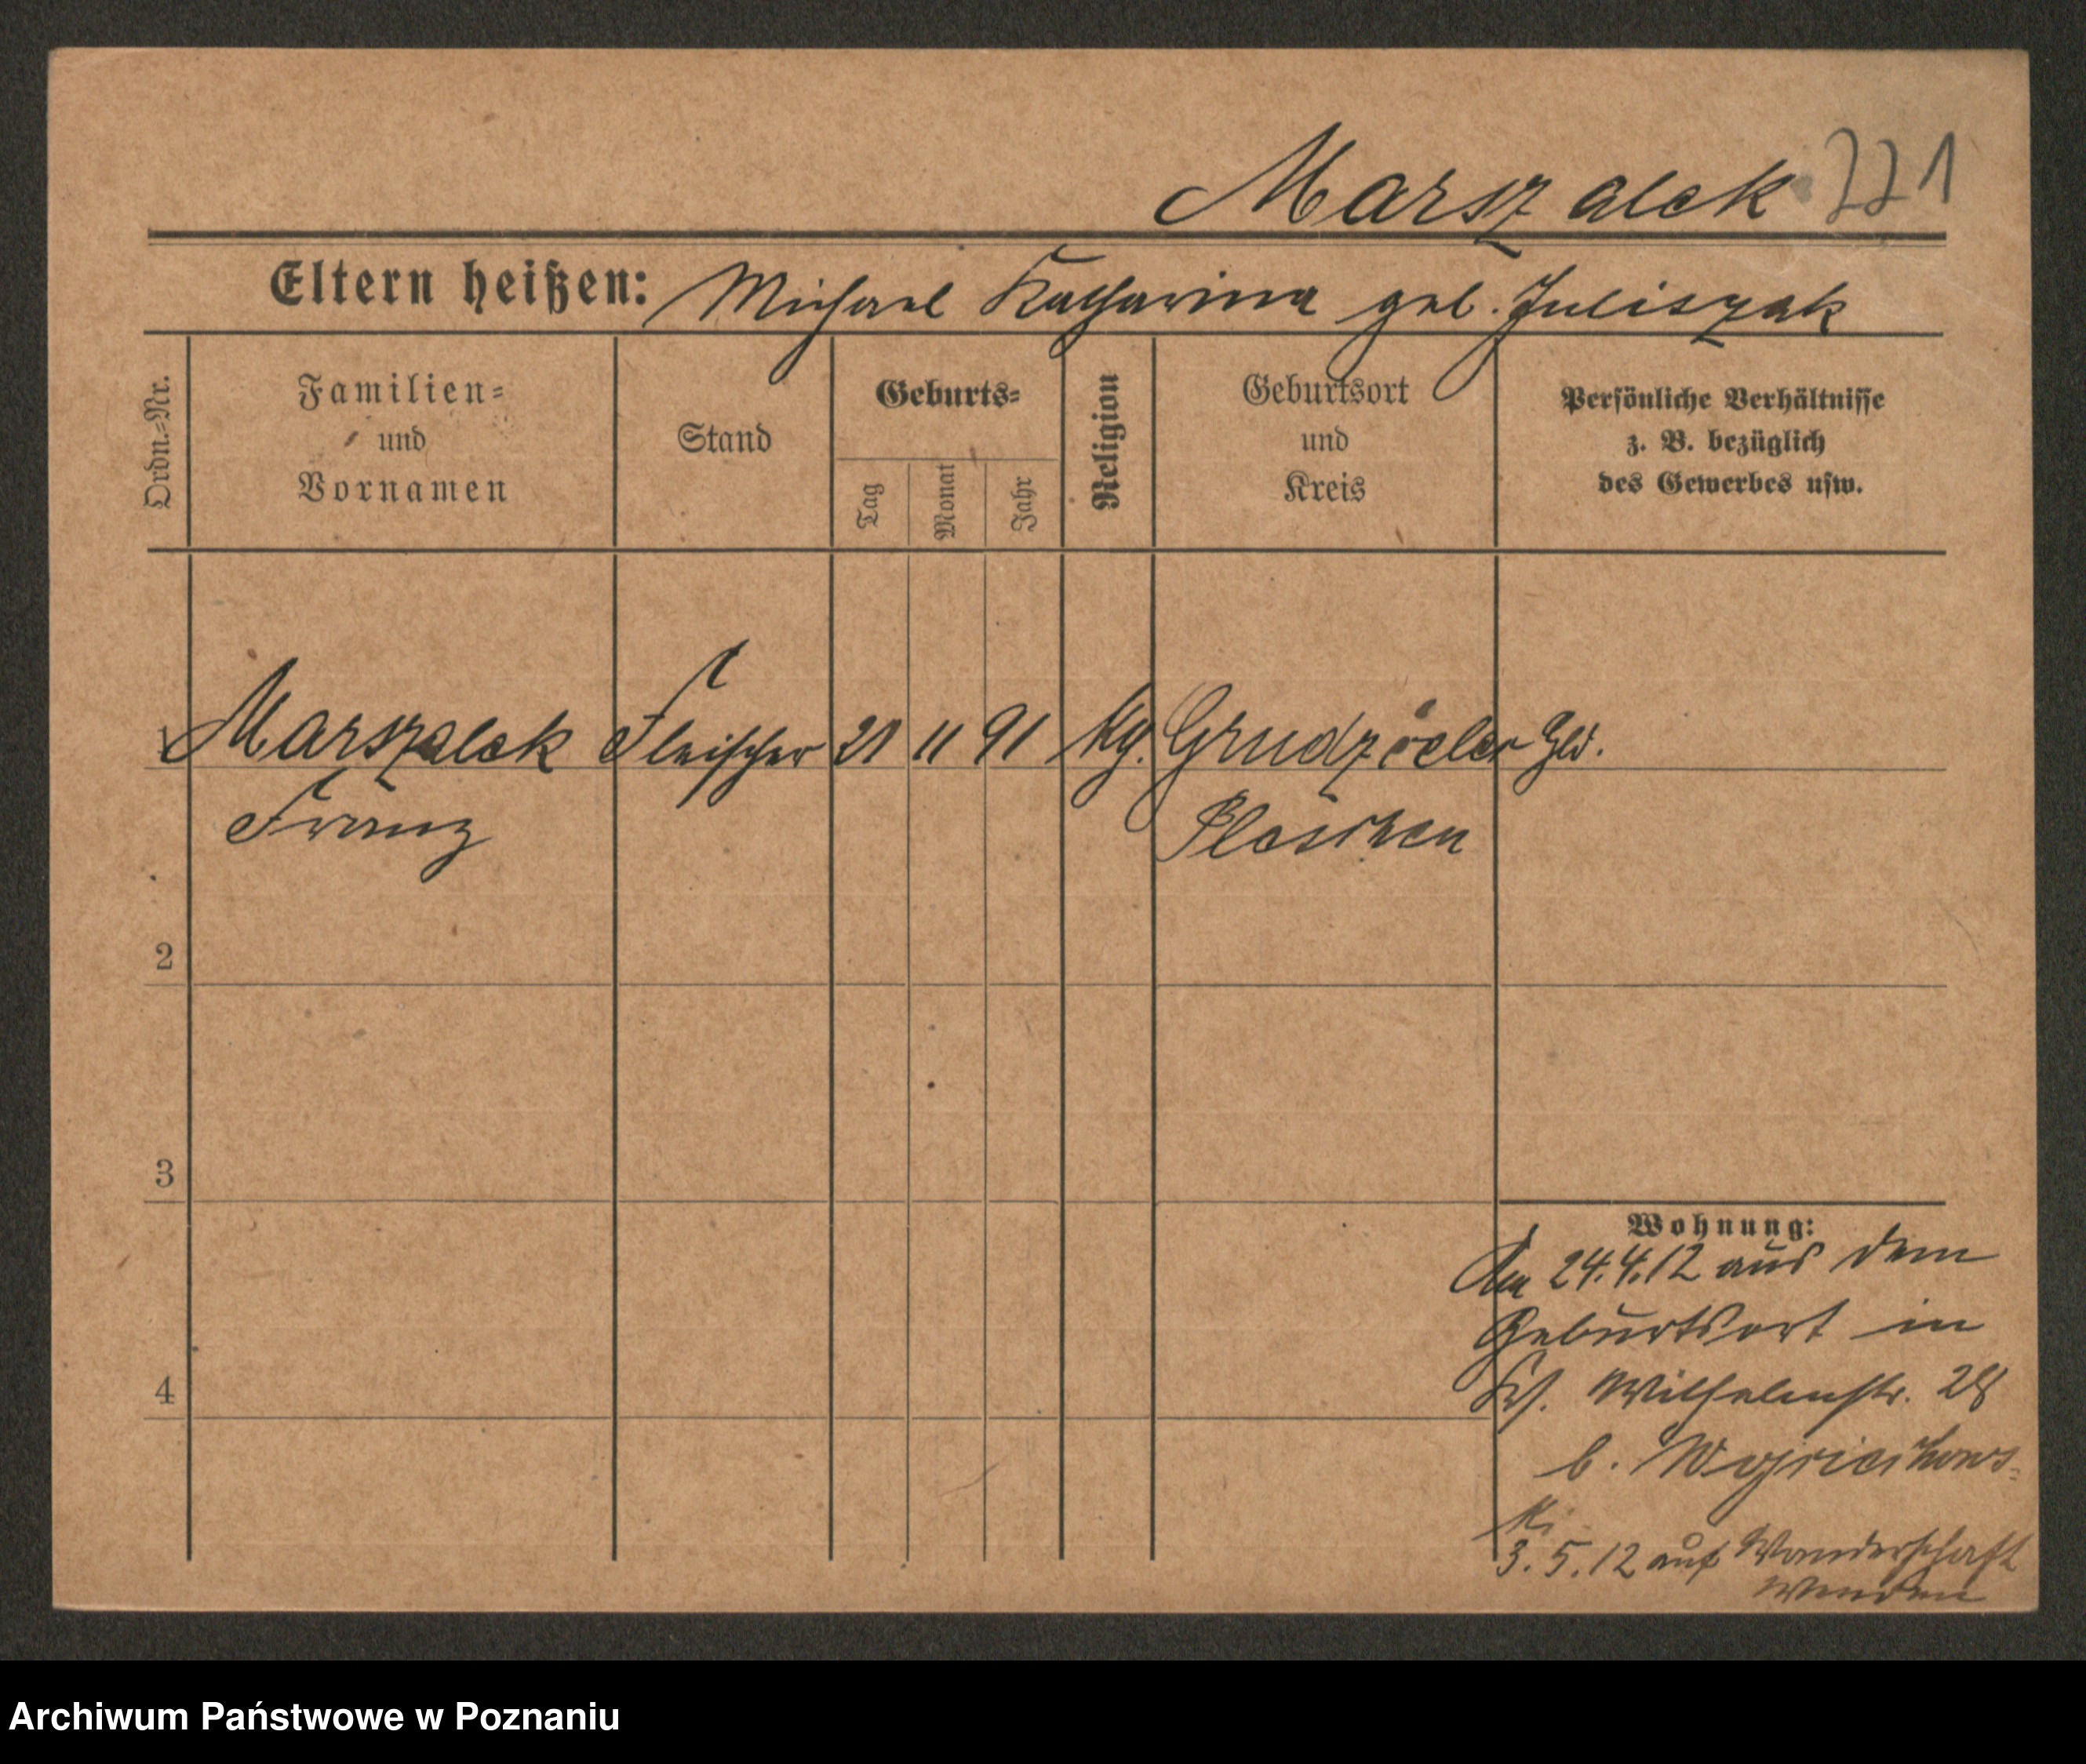 Marszalek 221
Eltern heißen: Michael Katharina geb. Juliszak
Ordn.-Nr.
Familien-
und
Vornamen
Stand
Geburts-
Tag
Monat
Jahr
Religion
Geburtsort
und
Kreis
Persönliche Verhältnisse
z. B. bezüglich
des Gewerbes usw.
1 Marszalek Fleischer 21 11 91 Kg.
Franz Pleschen
2
3
4
Wohnung:
Am 24.4.12 aus dem
Geburtsort in
Wilhelmstr. 28
b.
ki
3.5.12 auf Wanderschaft